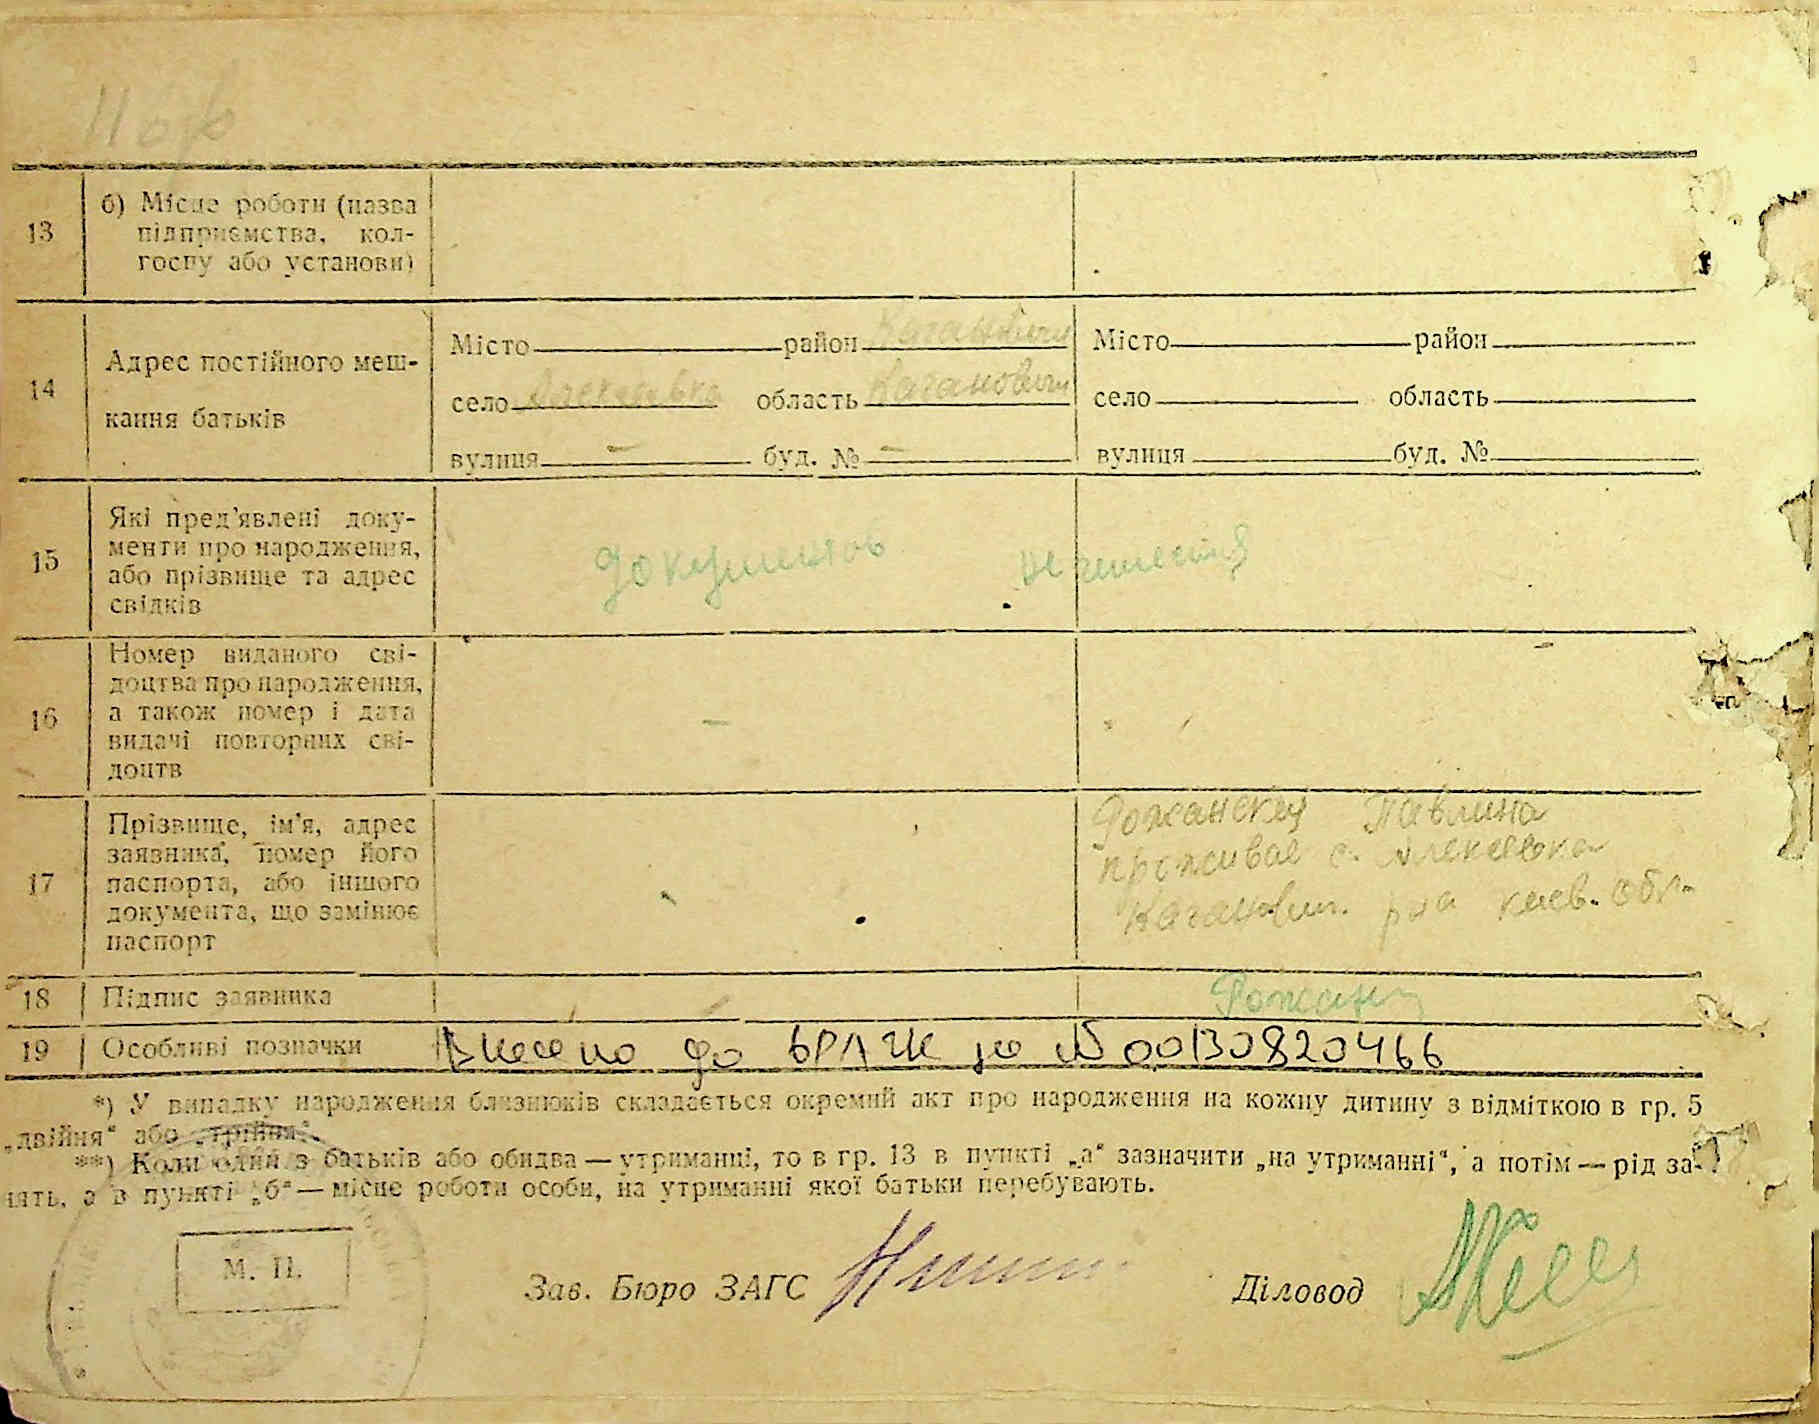 13
б) Місце роботи (назва
підприємства, кол-
госпу або установи)
14
Адрес постійного меш-
кання батьків
Місто район Каганович
село область Каганович
вулиця – буд. № –
Місто район
село область
вулиця буд. №
15
Які пред'явлені доку-
менти про народження,
або прізвище та адрес
свідків
документов не
16
Номер виданого сві-
доцтва про народження,
а також номер і дата
видачі повторних сві-
доцтв
–
17
Прізвище, ім'я, адрес
заявника, номер його
паспорта, або іншого
документа, що замінює
паспорт
Павлина
проживае с. Алексеевка
Каганович. р-на киев. обл.
18
Підпис заявника
19
Особливі позначки
Внесено до за № 00130820466
*) У випадку народження близнюків складається окремий акт про народження на кожну дитину з відміткою в гр. 5
„двійня" або „трійня".
**) Коли один з батьків або обидва — утриманці, то в гр. 13 в пункті „а" зазначити „на утриманні", а потім — рід за-
нять, а в пункті „б" — місце роботи особи, на утриманні якої батьки перебувають.
М. П.
Зав. Бюро ЗАГС
Діловод